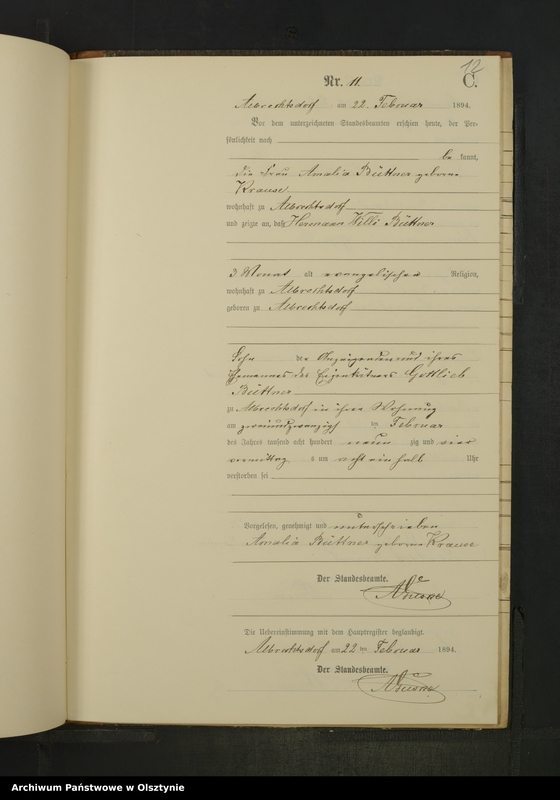 12
Nr. 11.
C.
Albrechtsdorf am 22. Februar 1894.
Vor dem unterzeichneten Standesbeamten erschien heute, der Per-
sönlichkeit nach
be kannt,
die Frau Amalia Büttner geborene
Krause
wohnhaft zu Albrechtsdorf
und zeigte an, daß Hermann Willi Büttner
3 Monat alt evangelischen Religion,
wohnhaft zu Albrechtsdorf
geboren zu Albrechtsdorf
Sohn der Anzeigenden und ihres
Ehemannes des Eigenkätners Gottlieb
Büttner
zu Albrechtsdorf in ihrer Wohnung
am zweiundzwanzigsten Februar
des Jahres tausend acht hundert neun zig und vier
vormittags um acht ein halb Uhr
verstorben sei
Vorgelesen, genehmigt und unterschrieben
Amalia Büttner geborene Krause
Der Standesbeamte.
Die Uebereinstimmung mit dem Hauptregister beglaubigt.
Albrechtsdorf am 22 ten Februar 1894.
Der Standesbeamte.
Archiwum Państwowe w Olsztynie